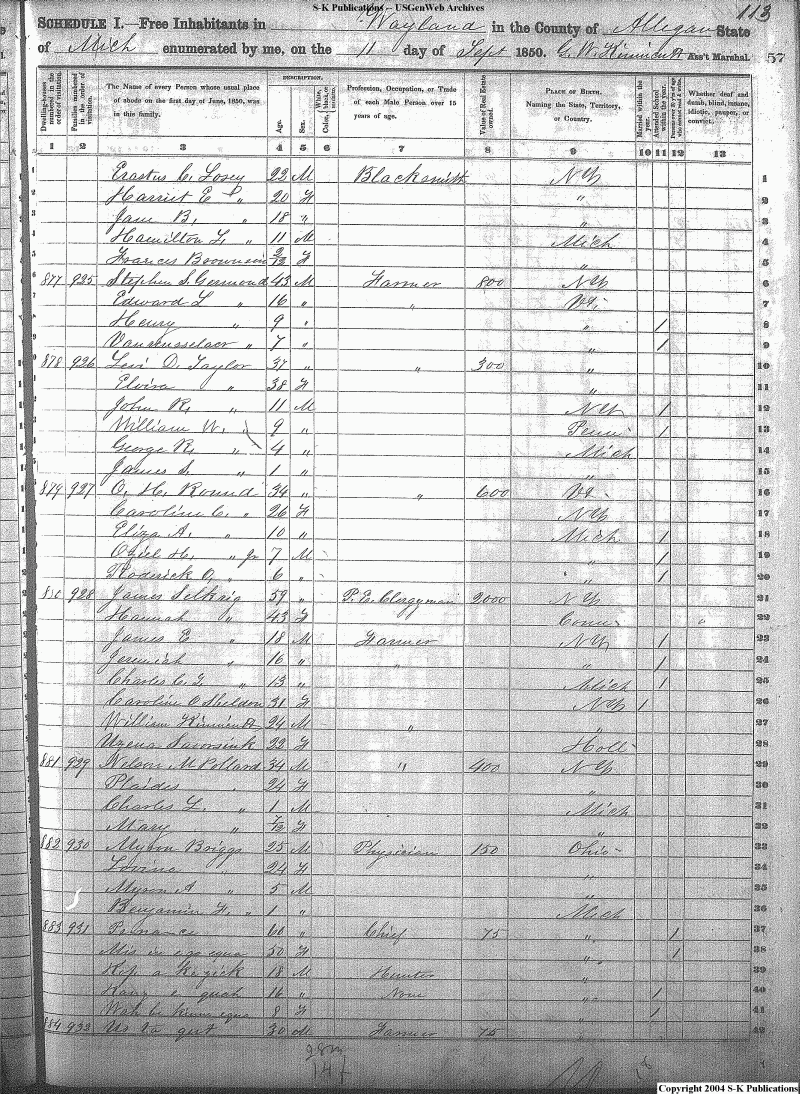 S-K Publications -- USGenWeb Archives
113
SCHEDULE I.—Free Inhabitants in Wayland in the County of Allegan State
of Mich enumerated by me, on the 11 day of Sept 1850. G. W. Ass't Marshal. 57
Dwelling-houses numbered in the order of visitation.
Families numbered in the order of visitation.
The Name of every Person whose usual place of abode on the first day of June, 1850, was in this family.
DESCRIPTION.
Age.
Sex.
Color, White, black, or mulatto.
Profession, Occupation, or Trade of each Male Person over 15 years of age.
Value of Real Estate owned.
PLACE OF BIRTH. Naming the State, Territory, or Country.
Married within the year.
Attended School within the year.
Whether deaf and dumb, blind, insane, idiotic, pauper, or convict.
1 2 3 4 5 6 7 8 9 10 11 12 13
1 Erastus C. Losey 22 M Blacksmith NY 1
2 Harriet E " 20 F " 2
3 Jane B. " 18 " 3
4 Hamilton L. " 11 M Mich 4
5 Frances 2/12 F " 5
6 877 925 Stephen S. Germond 43 M Farmer 800 NY 6
7 Edward L " 16 " " Vt. 7
8 Henry " 9 " " / 8
9 Vanrensselaer " 7 " " / 9
10 878 926 Levi D. Taylor 37 " " 300 " 10
11 Elvira " 38 F " 11
12 John R. " 11 M NY / 12
13 William W. " 9 " Penn / 13
14 George R. " 4 " Mich 14
15 James S. " 1 " " 15
16 879 927 O. H. Round 34 " " 600 Vt. 16
17 Caroline C. " 26 F NY 17
18 Eliza A. " 10 " Mich / 18
19 Oziel H. " Jr 7 M " / 19
20 Roderick O. " 6 " " / 20
21 880 928 James Selkrig 59 " P. E. Clergyman 2000 NY 21
22 Hannah " 43 F Conn " 22
23 James E " 18 M Farmer NY / 23
24 Jeremiah " 16 " " " / 24
25 Charles C. T " 13 " Mich / 25
26 Caroline O Sheldon 31 F NY 1 26
27 William 24 M " " 27
28 22 F Holl 28
29 881 929 Nelson M Pollard 34 M " 400 NY 29
30 Plaides " 24 F " 30
31 Charles L. " 1 M Mich 31
32 Mary " 7/12 F " 32
33 882 930 Myron Briggs 25 M Physician 150 Ohio 33
34 Lovina " 24 F " 34
35 Myron A " 5 M " 35
36 Benjamin F. " 1 " Mich 36
37 883 931 60 " Chief 75 " / 37
38 50 F " / 38
39 18 M Hunter " 39
40 16 " None " / 40
41 8 F " / 41
42 884 932 30 M Farmer 75 " 42
147
Copyright 2004 S-K Publications